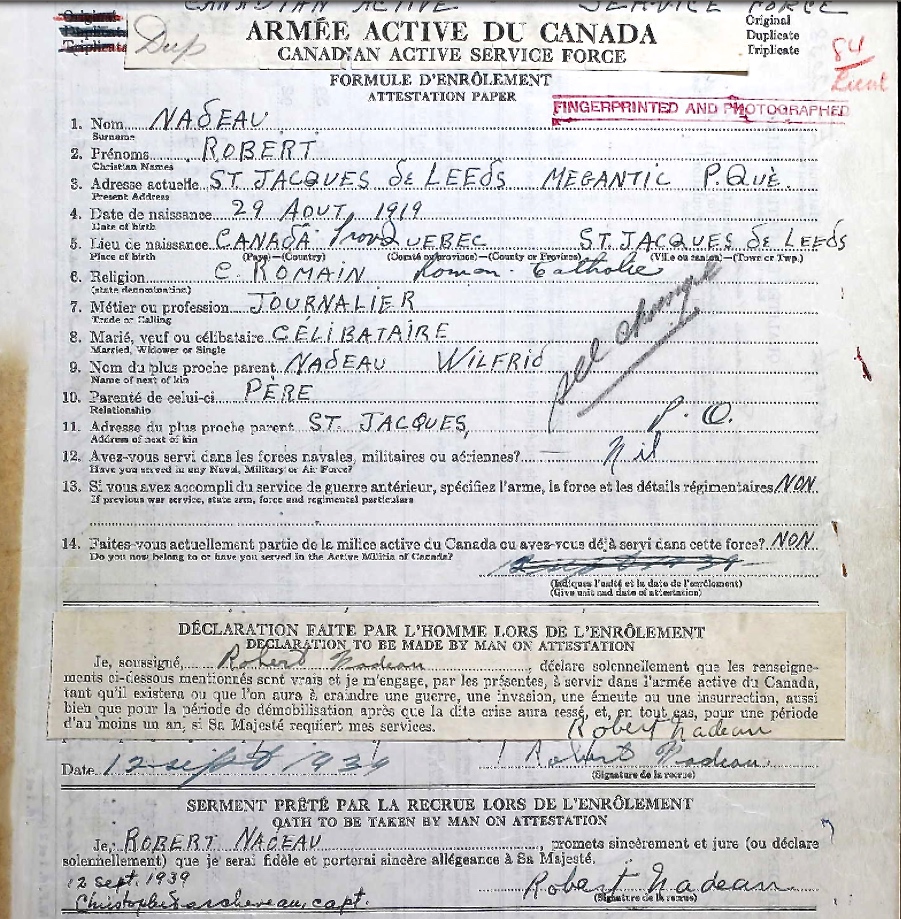 CANADIAN ACTIVE SERVICE FORCE
Original
Duplicate
Triplicate
Dup
ARMÉE ACTIVE DU CANADA
CANADIAN ACTIVE SERVICE FORCE
Original
Duplicate
Triplicate
84
FORMULE D'ENRÔLEMENT
ATTESTATION PAPER
FINGERPRINTED AND PHOTOGRAPHED
1. Nom NADEAU
Surname
2. Prénoms ROBERT
Christian Names
3. Adresse actuelle ST JACQUES de LEEdS MEGANTIC P.QUÈ.
Present Address
4. Date de naissance 29 AOUT, 1919
Date of birth
5. Lieu de naissance CANADA Prov QUEBEC ST. JACQUES de LEEdS
Place of birth (Pays)—(Country) (Comté ou province)—(County or Province) (Ville ou canton)—(Town or Twp.)
6. Religion C. ROMAIN Roman Catholic
(state denomination)
7. Métier ou profession JOURNALIER
Trade or Calling
8. Marié, veuf ou célibataire CÉLIBATAIRE
Married, Widower or Single
9. Nom du plus proche parent NADEAU WILFRID
Name of next of kin
see change
10. Parenté de celui-ci PÈRE
Relationship
11. Adresse du plus proche parent ST. JACQUES, P. Q.
Address of next of kin
12. Avez-vous servi dans les forces navales, militaires ou aériennes? Nil
Have you served in any Naval, Military or Air Force?
13. Si vous avez accompli du service de guerre antérieur, spécifiez l'arme, la force et les détails régimentaires NON
If previous war service, state arm, force and regimental particulars
14. Faites-vous actuellement partie de la milice active du Canada ou avez-vous déjà servi dans cette force? NON
Do you now belong to or have you served in the Active Militia of Canada?
(Indiquez l'unité et la date de l'enrôlement)
(Give unit and date of attestation)
DÉCLARATION FAITE PAR L'HOMME LORS DE L'ENRÔLEMENT
DECLARATION TO BE MADE BY MAN ON ATTESTATION
Je, soussigné, Robert Nadeau, déclare solennellement que les renseigne-
ments ci-dessous mentionnés sont vrais et je m'engage, par les présentes, à servir dans l'armée active du Canada,
tant qu'il existera ou que l'on aura à craindre une guerre, une invasion, une émeute ou une insurrection, aussi
bien que pour la période de démobilisation après que la dite crise aura cessé, et, en tout cas, pour une période
d'au moins un an, si Sa Majesté requiert mes services.
Robert Nadeau
Date 12 sept 1939 Robert Nadeau
(Signature de la recrue)
SERMENT PRÊTÉ PAR LA RECRUE LORS DE L'ENRÔLEMENT
OATH TO BE TAKEN BY MAN ON ATTESTATION
Je, ROBERT NADEAU, promets sincèrement et jure (ou déclare
solennellement) que je serai fidèle et porterai sincère allégeance à Sa Majesté.
12 sept. 1939 Robert Nadeau
(Signature de la recrue)
capt.